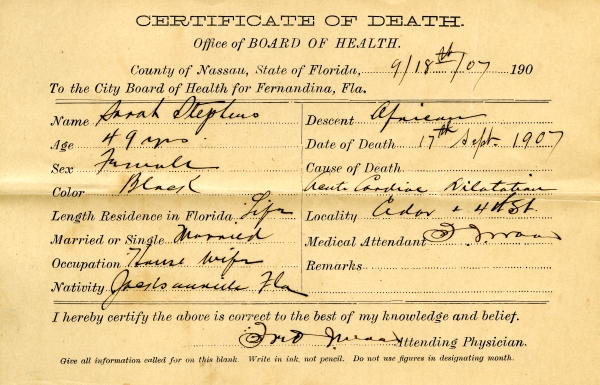 CERTIFICATE OF DEATH.
Office of BOARD OF HEALTH.
County of Nassau, State of Florida, 9/18th/07 190
To the City Board of Health for Fernandina, Fla.
Name Sarah Stephens
Age 49 yrs.
Sex Female
Color Black
Length Residence in Florida. Life
Married or Single Married
Occupation House Wife
Nativity Jacksonville Fla
Descent African
Date of Death 17th Sept. 1907
Cause of Death
Acute Cardiac Dilatation
Locality Cedar & 4th St.
Medical Attendant
Remarks
I hereby certify the above is correct to the best of my knowledge and belief.
Attending Physician.
Give all information called for on this blank. Write in ink, not pencil. Do not use figures in designating month.